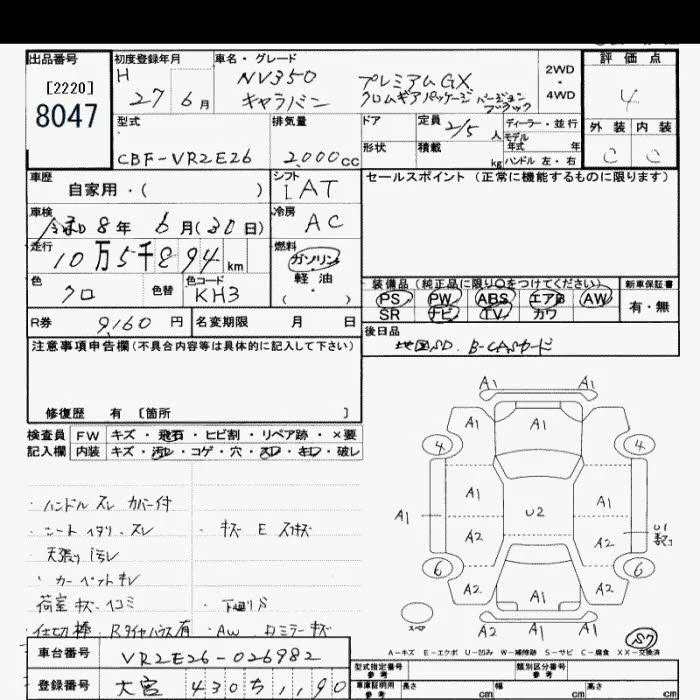 出品番号 初度登録年月 車名・グレード 2WD・4WD 評価点
[2220]
8047
H 27年 6月 NV350 キャラバン プレミアムGX
クロムギアパッケージ バージョンブラック
4
型式 排気量 ドア 定員 2/5人 ディーラー・並行 外装 内装
モデル年式 年
CBF-VR2E26 2,000cc 形状 積載 kg ハンドル 左・右 C C
車歴 自家用・( ) シフト IAT セールスポイント(正常に機能するものに限ります)
車検 令和8年 6月(30日) 冷房 AC
走行 10万5千894km 燃料 ガソリン
軽油
( )
色 クロ 色替 色コード KH3 装備品(純正品に限り○をつけてください) 新車保証書
PS PW ABS エアB AW 有・無
SR ナビ TV カワ
R券 9,160円 名変期限 月 日 後日品
地図SD. B-CASカード
注意事項申告欄(不具合内容等は具体的に記入して下さい)
修復歴 有 [箇所 ]
検査員 FW キズ・飛石・ヒビ割・リペア跡・×要
記入欄 内装 キズ・汚レ・コゲ・穴・スレ・キレ・破レ
・ハンドル スレ カバー付
・シート ヘタリ、スレ ・キズ E スリキズ
・天張り汚レ
・カーペットキレ
荷室 キズ・ヘコミ ・下廻りS
・仕切棒、Rタイヤハウス有 ・AW、ドアミラーキズ
A1 A1
A1
4 4
A1 A1
A1
U2
A2 A2
U1
6 6
A2 A2
A1
A2 A1 A1
S7
A-キズ E-エクボ U-凹み W-補修跡 S-サビ C-腐食 XX-交換済
車台番号 VR2E26-026982
登録番号 大宮 430 ち 1,90
型式指定番号 参考 類別区分番号 参考
車庫証明用 参考 長さ cm 幅 cm 高さ cm